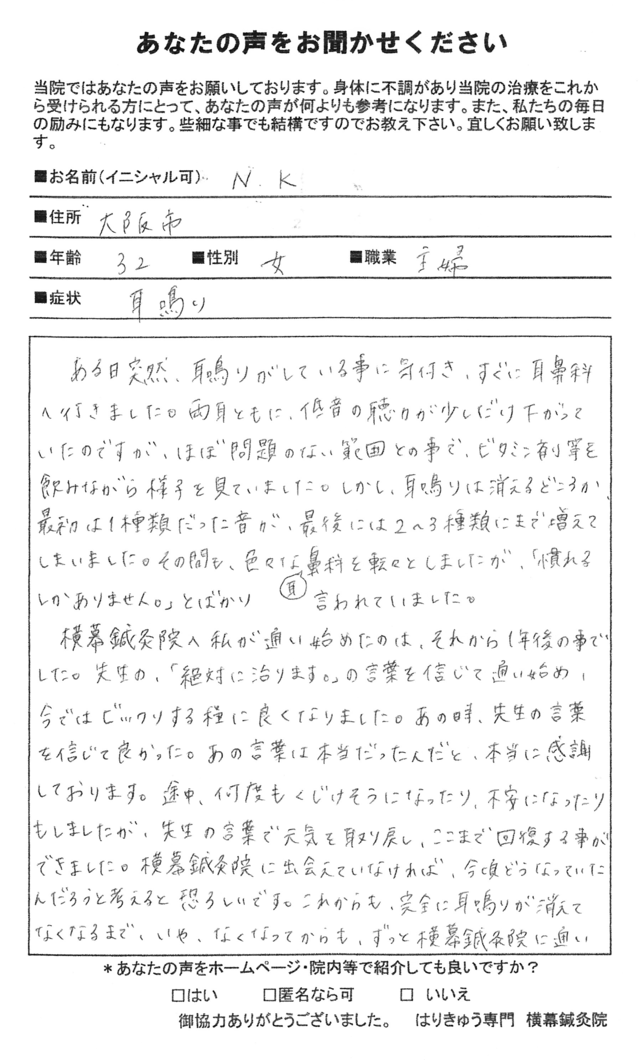 あなたの声をお聞かせください
当院ではあなたの声をお願いしております。身体に不調があり当院の治療をこれか
ら受けられる方にとって、あなたの声が何よりも参考になります。また、私たちの毎日
の励みにもなります。些細な事でも結構ですのでお教え下さい。宜しくお願い致しま
す。
■お名前(イニシャル可) N.K
■住所 大阪市
■年齢 32 ■性別 女 ■職業 主婦
■症状 耳鳴り
ある日突然、耳鳴りがしている事に気付き、すぐに耳鼻科
へ行きました。両耳ともに、低音の聴力が少しだけ下がって
いたのですが、ほぼ問題のない範囲との事で、ビタミン剤等を
飲みながら様子を見ていました。しかし、耳鳴りは消えるどころか、
最初は1種類だった音が、最後には2~3種類にまで増えて
しまいました。その間も、色々な鼻科を転々としましたが、「慣れる
しかありません。」とばかり 耳 言われていました。
横幕鍼灸院へ私が通い始めたのは、それから1年後の事で
した。先生の、「絶対に治ります。」の言葉を信じて通い始め、
今ではビックリする程に良くなりました。あの時、先生の言葉
を信じて良かった。あの言葉は本当だったんだと、本当に感謝
しております。途中、何度もくじけそうになったり、不安になったり
もしましたが、先生の言葉で元気を取り戻し、ここまで回復する事が
できました。横幕鍼灸院に出会えていなければ、今頃どうなっていた
んだろうと考えると恐ろしいです。これからも、完全に耳鳴りが消えて
なくなるまで、いや、なくなってからも、ずっと横幕鍼灸院に通い
*あなたの声をホームページ・院内等で紹介しても良いですか?
□はい □匿名なら可 □ いいえ
御協力ありがとうございました。 はりきゅう専門 横幕鍼灸院